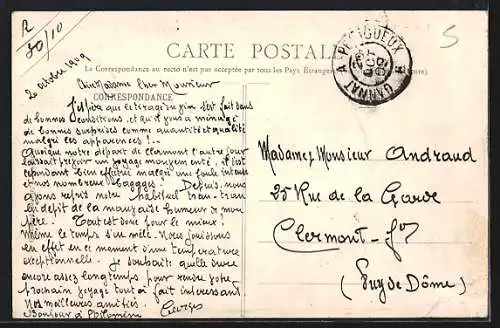 R
30/10
5
CARTE POSTALE
La Correspondance au recto n'est pas acceptée par tous les Pays Étrangers
GANNAT A PÉRIGUEUX
OCT
09
2 octobre 1909
Chère Madame Cher Monsieur
CORRESPONDANCE
J'espère que le tirage du vin s'est fait dans
de bonnes conditions, et qu'il vous a ménagé
de bonnes surprises comme quantité et qualité
malgré les apparences !..
Quoique notre départ de Clermont l'autre jour
laissait prévoir un voyage mouvementé, il s'est
cependant bien effectué malgré une foule intense
et nos nombreux bagages. Depuis, nous
avons repris notre habituel tran-tran
en dépit de la mauvaise humeur de mon
père. Tout est donc pour le mieux.
Même le temps s'en mêle. Nous jouissons
en effet en ce moment d'une température
exceptionnelle. Je souhaite qu'elle dure
encore assez longtemps pour rendre votre
prochain voyage tout à fait intéressant
Nos meilleures amitiés.
Bonjour à Philomène
Georges
Madame & Monsieur Andraud
25 Rue de la Garde
Clermont-Fd
(Puy de Dôme)